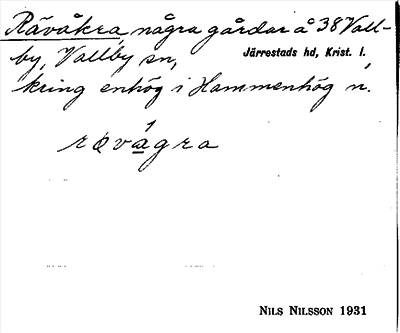 Rävåkra, några gårdar å 38 Vall-
by, Vallby sn, Järrestads hd, Krist. l.
kring enhög i Hammenhög n.
rǫvagra
NILS NILSSON 1931